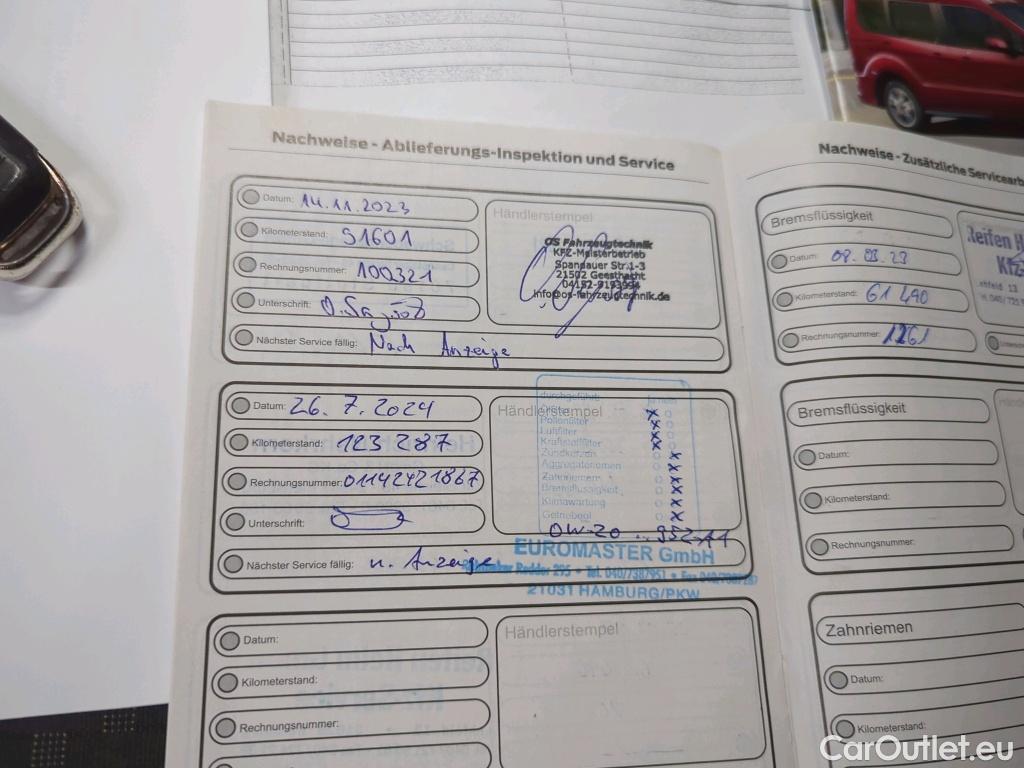 Nachweise - Ablieferungs-Inspektion und Service
Datum: 14.11.2023
Kilometerstand: 91601
Rechnungsnummer: 100321
Unterschrift:
Nächster Service fällig: Nach Anzeige
Händlerstempel
OS Fahrzeugtechnik
KFZ-Meisterbetrieb
Spandauer Str.1-3
21502 Geesthacht
04152-8193994
info@os-fahrzeugtechnik.de
Datum: 26. 7. 2024
Kilometerstand: 123 287
Rechnungsnummer: 01142421867
Unterschrift:
Nächster Service fällig: n. Anzeige
Händlerstempel
durchgeführt: Ja nein
Ölfilter
Pollenfilter
Luftfilter
Kraftstofffilter
Zündkerzen
Aggregatriemen
Zahnriemen
Bremsflüssigkeit
Klimawartung
Getriebeöl
0W-20 ..952-A1
EUROMASTER GmbH
Redder 295 • Tel. 040/7387951 • Fax
21031 HAMBURG/PKW
Datum:
Kilometerstand:
Rechnungsnummer:
Händlerstempel
Nachweise - Zusätzliche Servicearb
Bremsflüssigkeit
Datum: 08. 03. 23
Kilometerstand: 61 490
Rechnungsnummer: 1261
Reifen H
Kfz-
Bremsflüssigkeit
Datum:
Kilometerstand:
Rechnungsnummer:
Zahnriemen
Datum:
Kilometerstand:
CarOutlet.eu